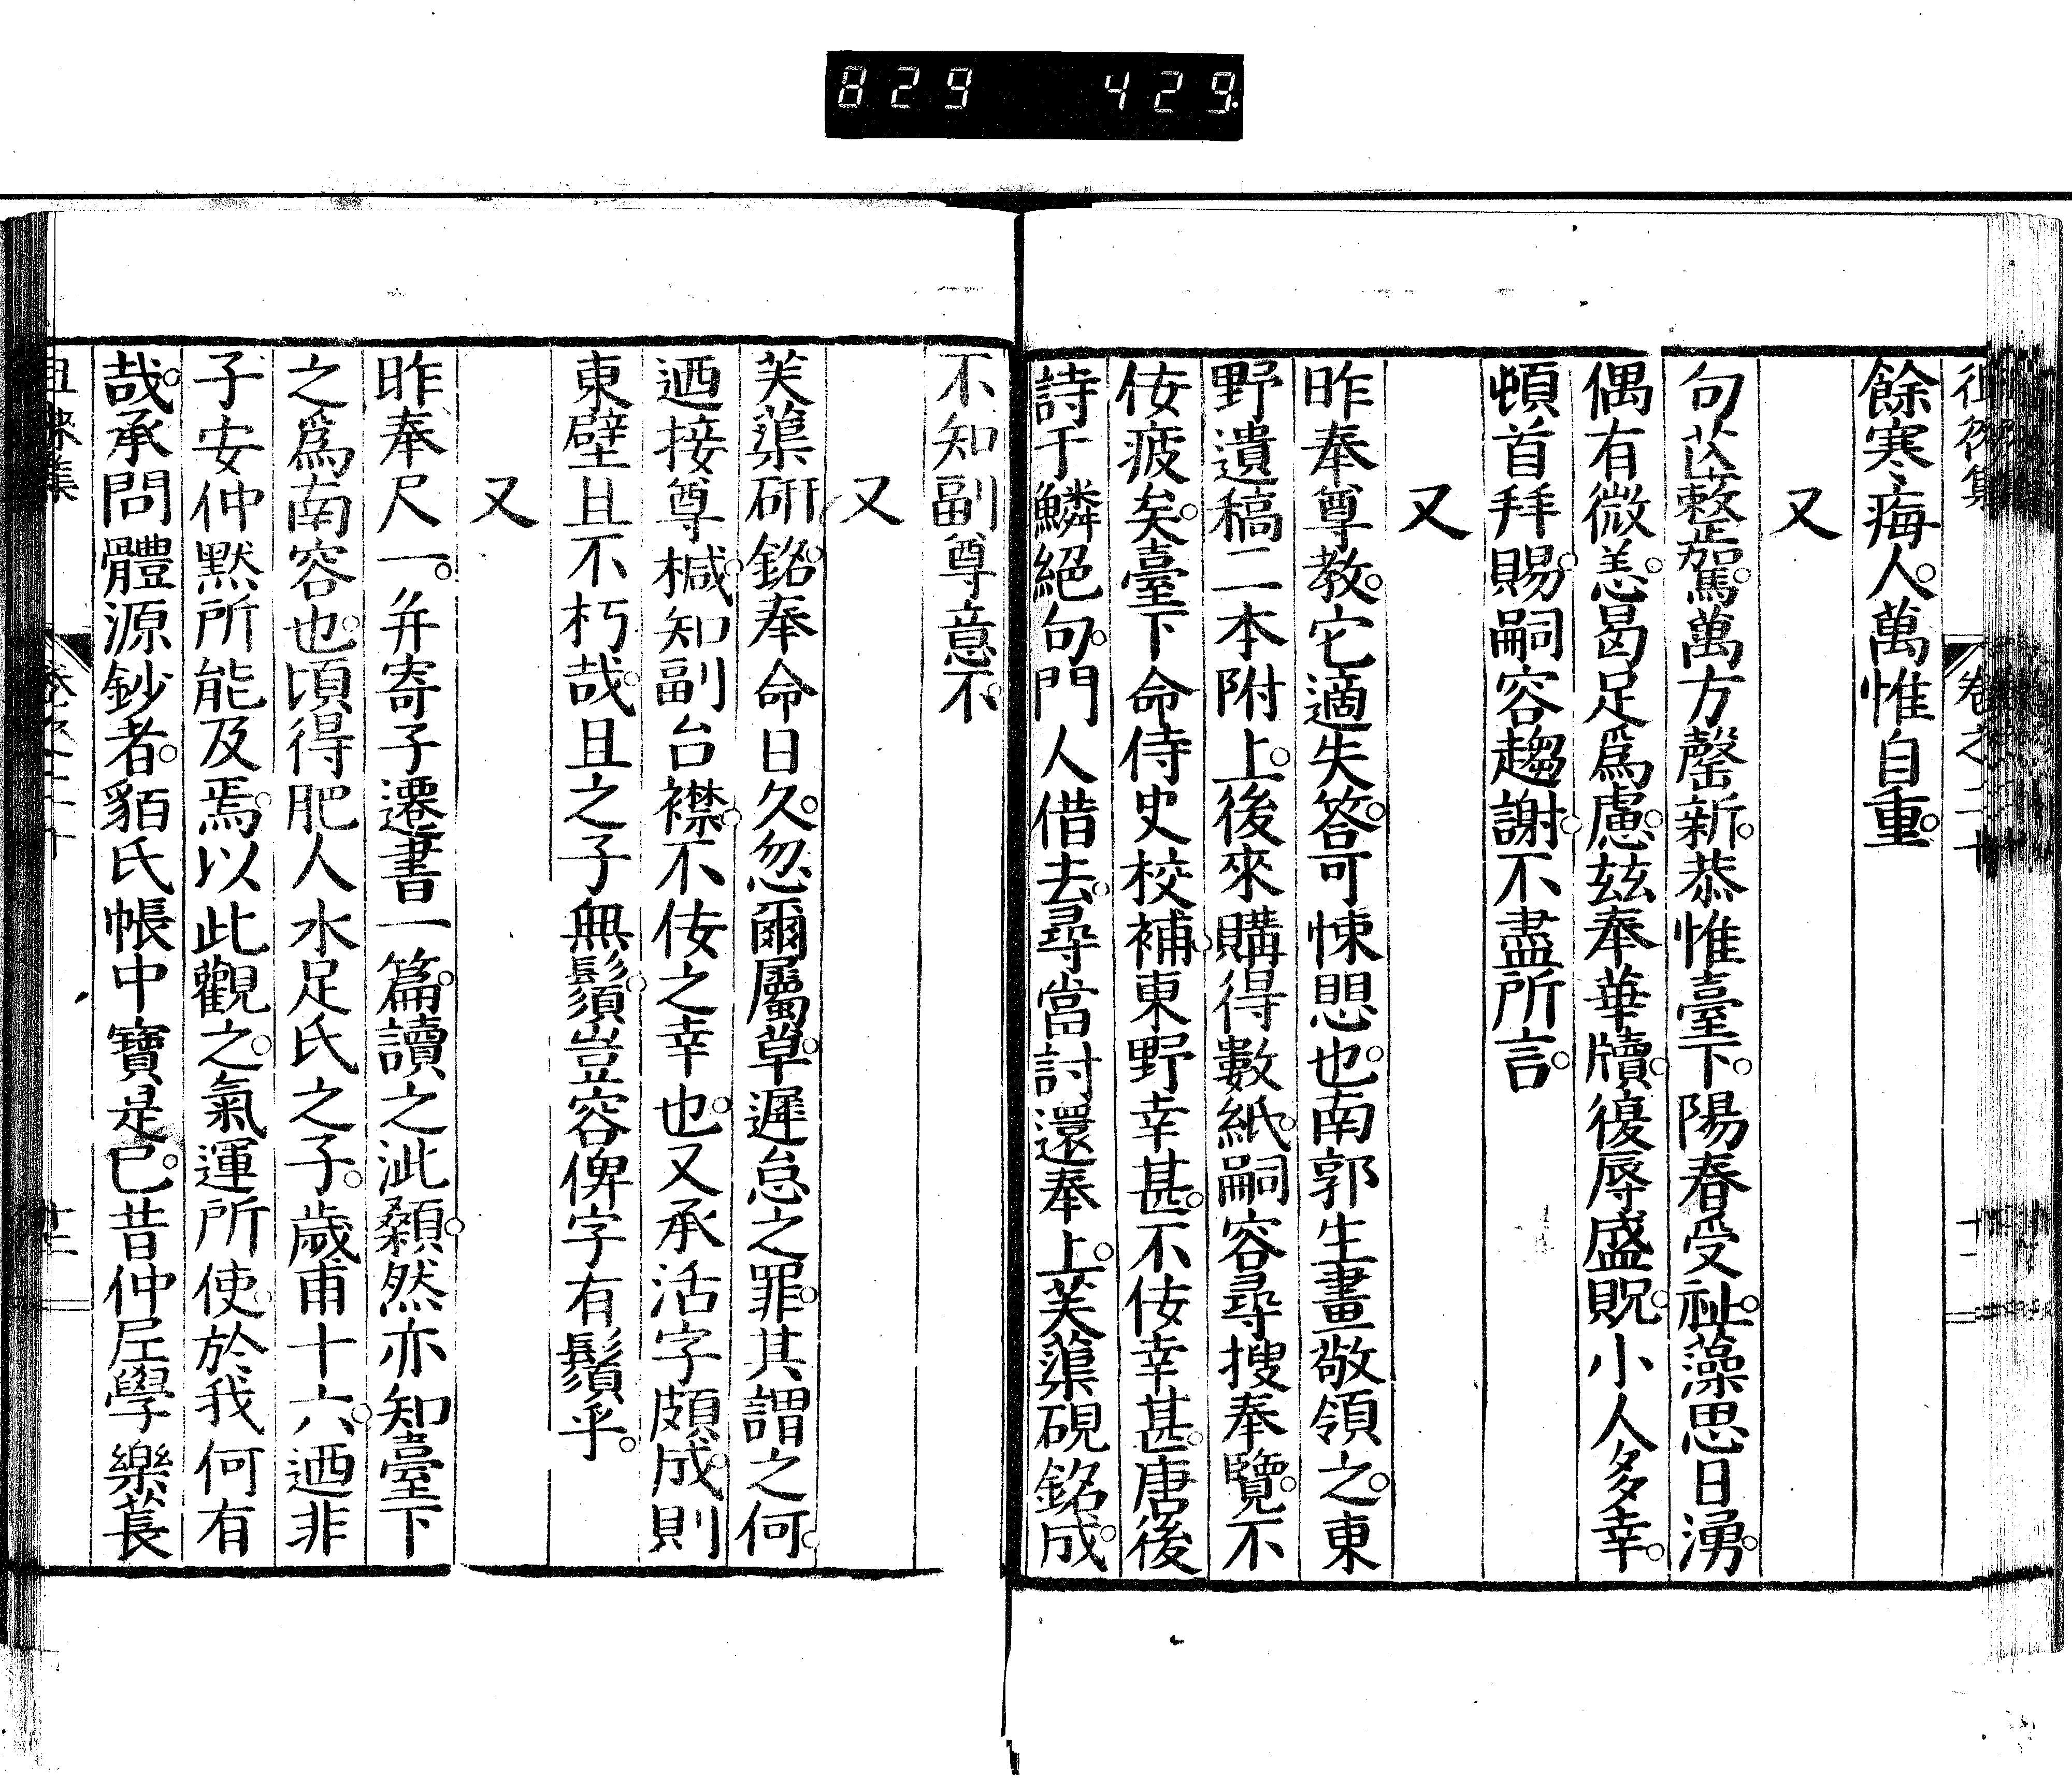 829 429
徂徠集 卷之二十 十二
餘寒海人。萬惟自重。
又
句芒整駕。萬方罄新。恭惟臺下。陽春受祉。藻思日湧。
偶有微恙。曷足爲慮。玆奉華牘。復辱盛貺。小人多幸。
頓首拜賜。嗣容趨謝。不盡所言。
又
昨奉尊教。它適失答。可悚愳也。南郭生畫敬領之。東
野遺稿二本附上。後來購得數紙。嗣容尋搜奉覽。不
佞疲矣。臺下命侍史校補。東野幸甚。不佞幸甚。唐後
詩于鱗絕句。門人借去。尋當討還奉上。芙蕖硯銘成。
不知副尊意不。
又
芙蕖硏銘。奉命日久。忽爾屬草。遲怠之罪。其謂之何。
迺接尊椷。知副台襟。不佞之幸也。又承活字頗成。則
東壁且不朽哉。且之子無鬚。豈容俾字有鬚乎。
又
昨奉尺一。幷寄子遷書一篇。讀之泚顙。然亦知臺下
之爲南容也。頃得肥人水足氏之子。歲甫十六。迺非
子安仲默所能及焉。以此觀之。氣運所使。於我何有
哉。承問體源鈔者。貊氏帳中寶是已。昔仲尼學樂萇